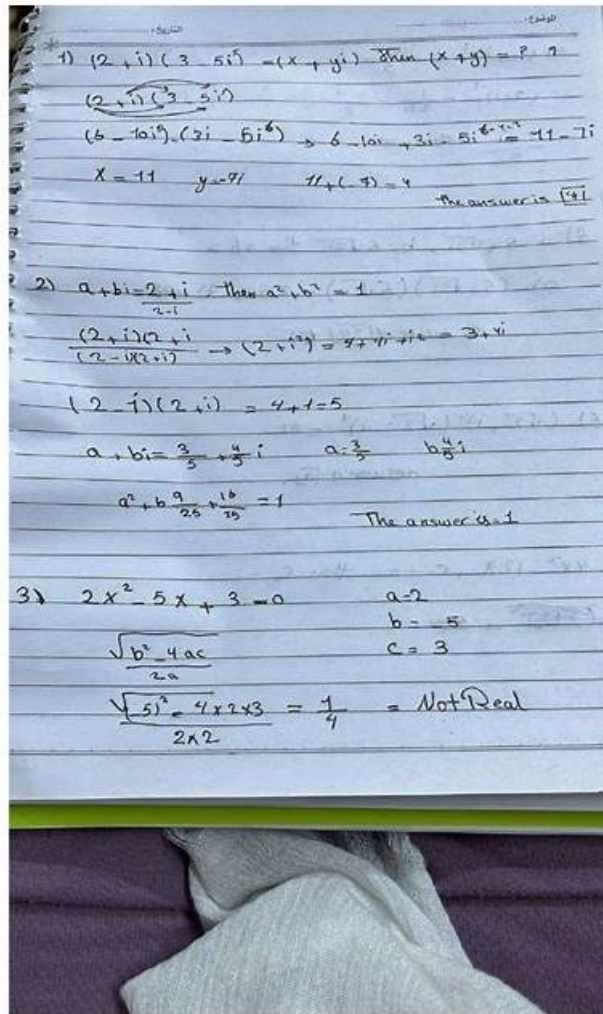 الموضوع: التاريخ:
1) (2 + i) (3 - 5i⁵) = (x + yi) then (x + y) = ? ?
(2 + i) (3 - 5i⁵)
(6 - 10i⁵) - (3i - 5i⁶) → 6 - 10i + 3i - 5i⁶ = 11 - 7i
x = 11 y = -7i 11 + (-7) = 4
the answer is 4
2) a + bi = 2 + i / 2 - i then a² + b² = 1
(2 + i)(2 + i / (2 - i)(2 + i) → (2 + i²) = 4 + 4i + i² = 3 + 4i
(2 - i)(2 + i) = 4 + 1 = 5
a + bi = 3/5 + 4/5 i a = 3/5 b 4/5 i
a² + b 9/25 + 16/25 = 1
The answer is = 1
3) 2x² - 5x + 3 = 0 a = 2
b = -5
√b² - 4ac / 2a c = 3
√(-5)² - 4 × 2 × 3 / 2 × 2 = 1/4 = Not Real